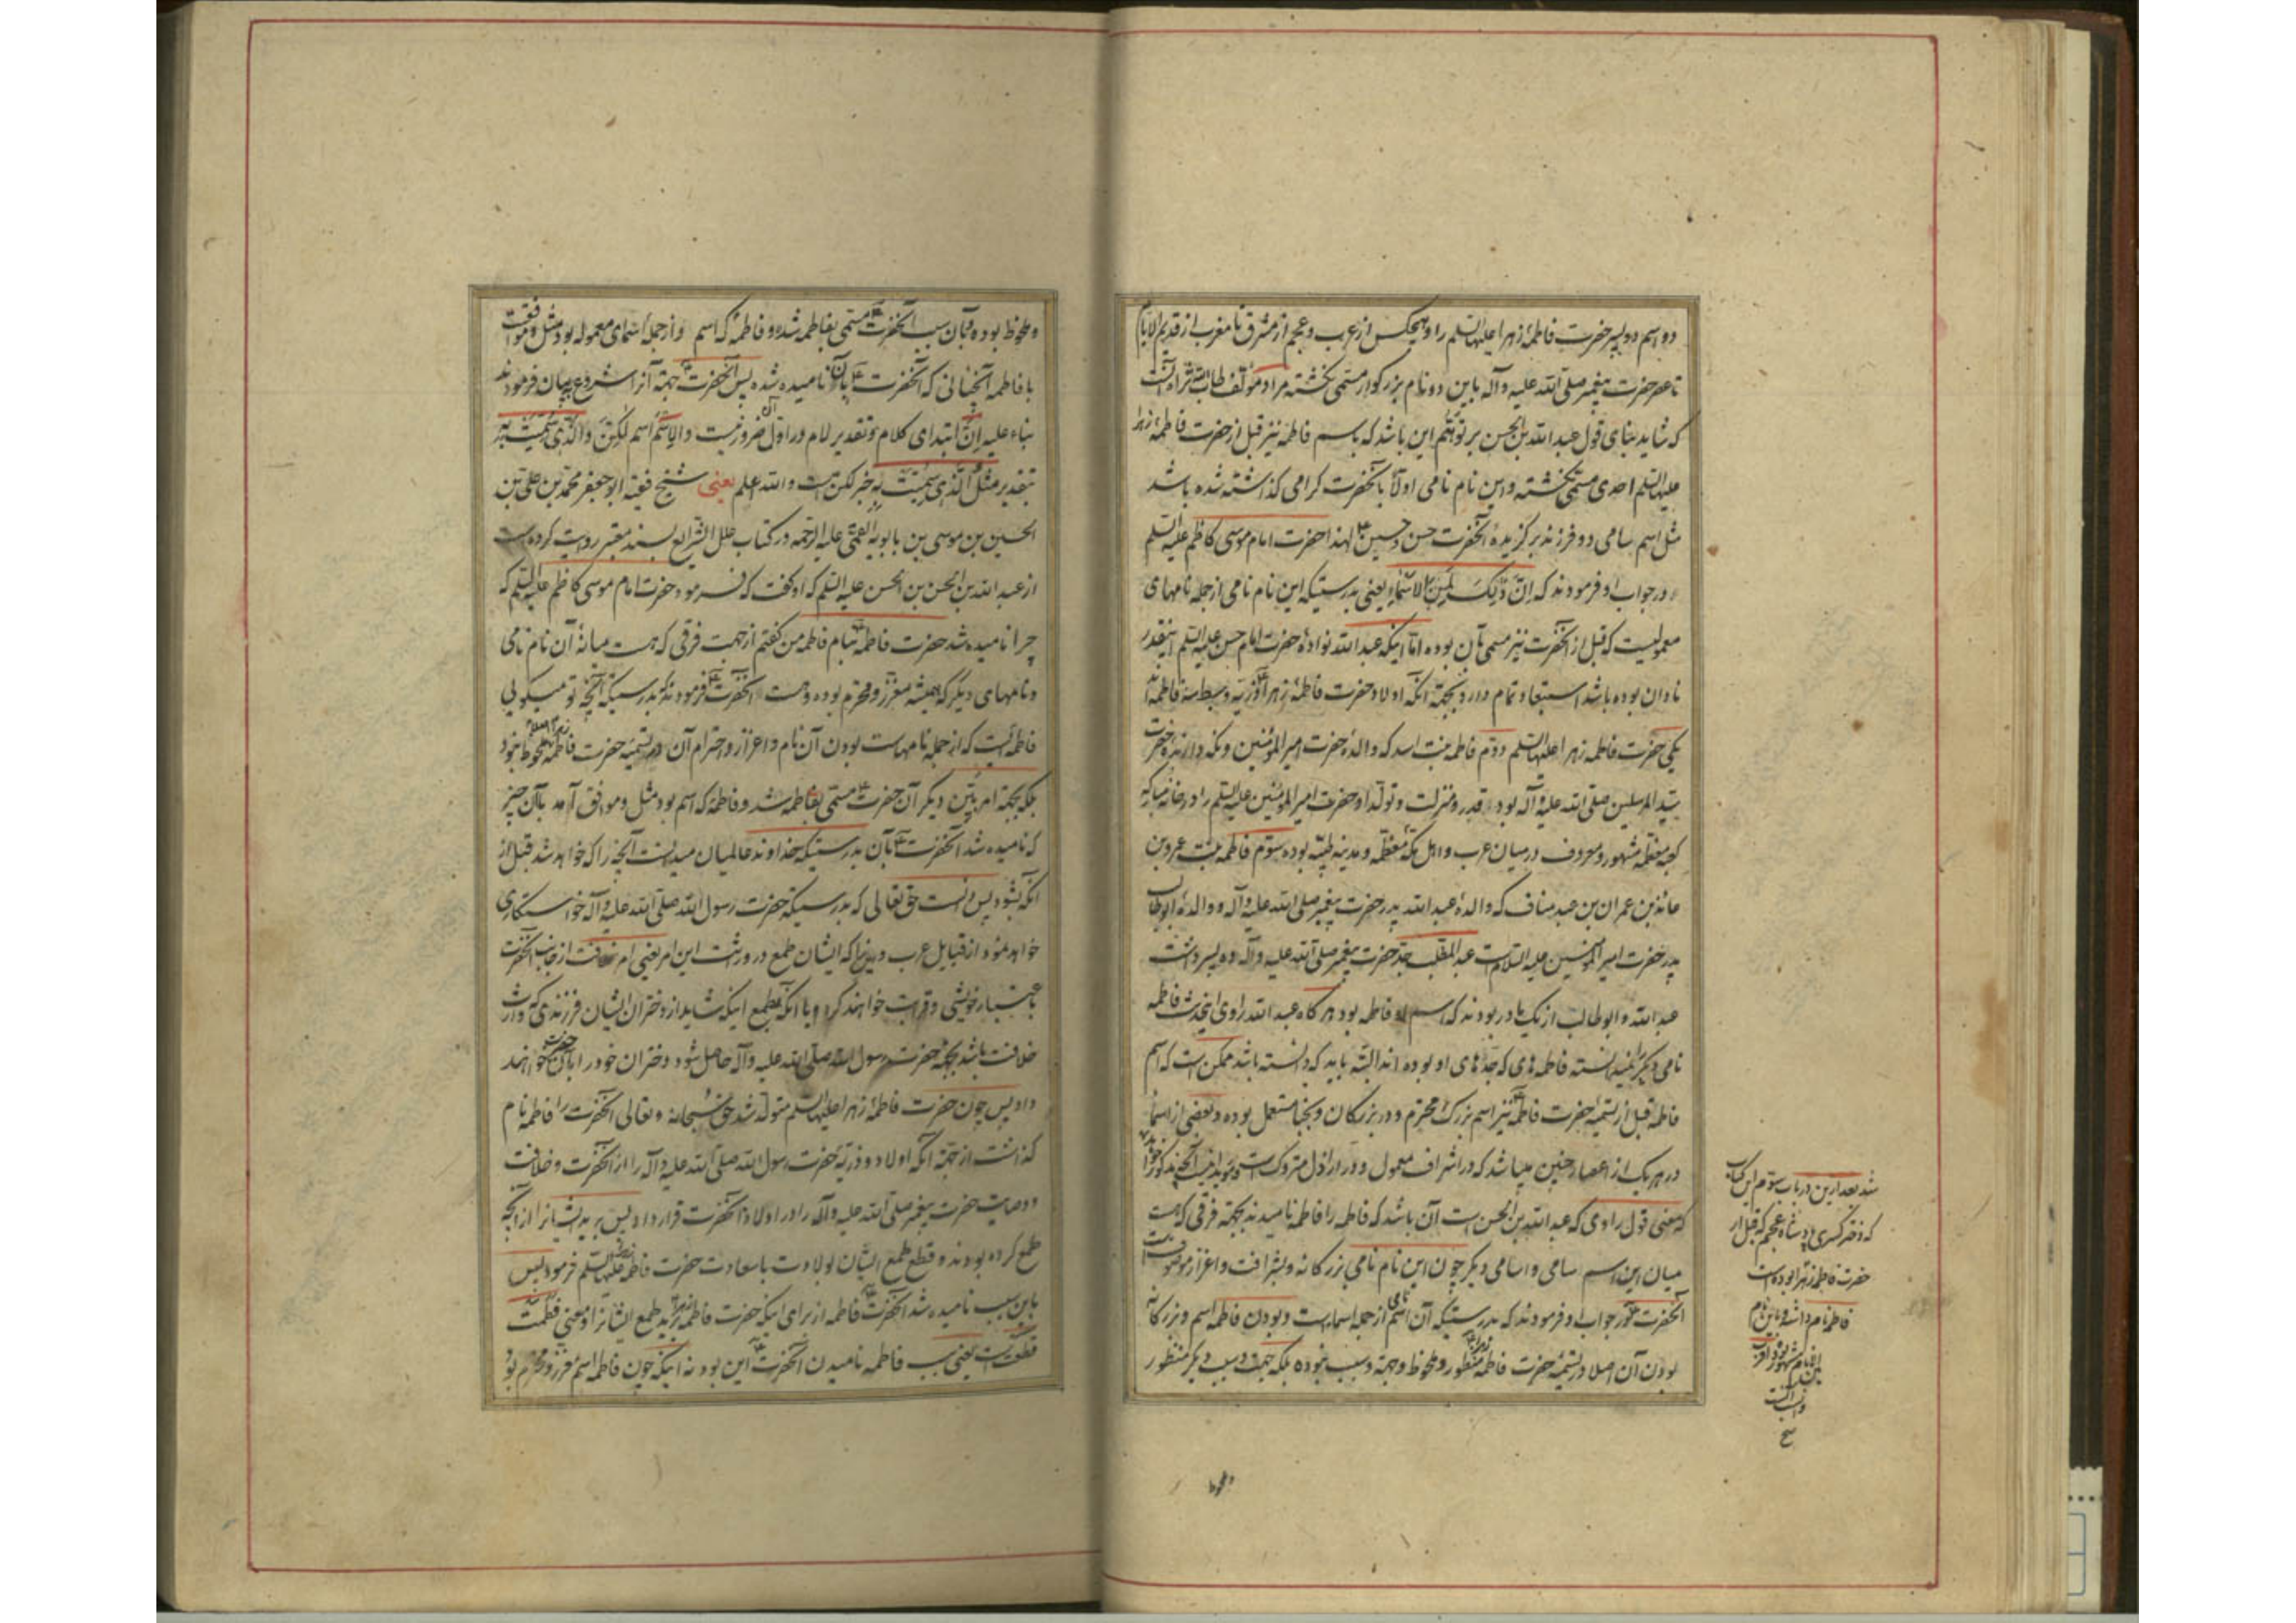 دو اسم دو پسر حضرت فاطمهٔ زهرا علیها السلم را و هیچکس از عرب و عجم از مشرق تا مغرب از قدیم الایام
تا عصر حضرت پیغمبر صلی الله علیه و آله باین دو نام بزرگوار مسمی نگشته مراد مؤلف طاب الله ثراه آنست
که شاید بنای قول عبد الله بن الحسن بر توهم این باشد که باسم فاطمه نیز قبل از حضرت فاطمهٔ زهرا
علیها السلم احدی مسمی نگشته و این نام نامی اولاً بآنحضرت گرامی گذاشته شده باشد
مثل اسم سامی دو فرزند برگزیدهٔ آنحضرت حسن و حسین لهذا حضرت امام موسی کاظم علیه السلم
در جواب او فرمودند که اِنَّ ذٰلِکَ لَمِنَ الاَسْماءِ یعنی بدرستیکه این نام نامی از جمله نامهای
معمولیست که قبل از آنحضرت نیز مسمی بآن بوده اما اینکه عبد الله نوادهٔ حضرت امام حسن علیه السلم اینقدر
نادان بوده باشد استبعاد تمام دارد بجهة آنکه اولاد حضرت فاطمهٔ زهرا و ذریه بواسطه سه فاطمه اند
یکی حضرت فاطمه زهرا علیها السلم دوم فاطمه بنت اسد که والدهٔ حضرت امیر المؤمنین و نگهدارندهٔ حضرت
سید المرسلین صلی الله علیه و آله بود و قدر و منزلت و تولد او حضرت امیر المؤمنین علیه السلم را در خانه مبارکه
کعبه معظمه مشهور و معروف در میان عرب و اهل مکهٔ معظمه و مدینه طیبه بوده سوم فاطمه بنت عمرو بن
عائذ بن عمران بن عبد مناف که والدهٔ عبد الله پدر حضرت پیغمبر صلی الله علیه و آله و والدهٔ ابو طالب
پدر حضرت امیر المؤمنین علیه السلام است عبد المطلب جد حضرت پیغمبر صلی الله علیه و آله ده پسر داشت
عبد الله و ابو طالب از یک مادر بودند که اسم او فاطمه بود هر گاه عبد الله راوی اینحدیث فاطمه
نامی دیگر را نمیدانسته فاطمه های که جده های او بوده اند البته باید که دانسته باشد ممکن است که اسم
فاطمه قبل از تسمیهٔ حضرت فاطمه نیز اسم بزرگ و محترم و در بزرگان و نجبا مستعمل بوده و بعضی از اسما
در هر یک از اعصار چنین میباشد که در اشراف معمول و در اراذل متروک است و مؤید اینست آنچه مذکور خواهد
که معنی قول راوی که عبد الله بن الحسن است آن باشد که فاطمه را فاطمه نامیدند بجهة فرقی که هست
میان این اسم سامی و اسامی دیگر چون این نام نامی بزرگانه و بشرافت و اعزاز موصوفست
آنحضرت در جواب او فرمودند که بدرستیکه آن اسم نامی از جمله اسما است و بودن فاطمه اسم و بزرگانه
بودن آن اصلا در تسمیهٔ حضرت فاطمه زهرا منظور و ملحوظ و جهة و سبب نبوده بلکه جهة و سبب دیگر منظور
شد بعد ازین در باب سوم این کتاب
که دختر کسری پادشاه عجم که قبل از
حضرت فاطمه زهرا بوده است
فاطمه نام داشت و باین نام
و ملحوظ
و ملحوظ بوده و بآن سبب آنحضرت مسمی بفاطمه شد و فاطمه که اسم و از جمله اسمای معموله بود مثل و موافقست
با فاطمه آنچنانی که آنحضرت بآن نامیده شده پس آنحضرت جهة آنرا شروع به بیان فرمودند
بناء علیه اِنَّ ابتدای کلام و تقدیر لام در اول آن ضرور نیست و الاسم اسم لکن و الذی سمیت به
بتقدیر مثل الذی سمیت به خبر لکن است و الله اعلم یعنی شیخ فقیه ابو جعفر محمد بن علی بن
الحسین بن موسی بن بابویه القمی علیه الرحمه در کتاب علل الشرایع بسند معتبر روایت کرده است
از عبد الله بن الحسن بن الحسن علیه السلم که او گفت که فرمود حضرت امام موسی کاظم علیه السلم که
چرا نامیده شد حضرت فاطمه بنام فاطمه من گفتم از جهت فرقی که هست میانهٔ آن نام نامی
و نامهای دیگر که همیشه معزز و محترم بوده و هست آنحضرت فرمودند که بدرستیکه آنچه تو میگویی
فاطمه ایست که از جمله نامهاست بودن آن نام و اعزاز و احترام آن در تسمیه حضرت فاطمه زهرا اصلا ملحوظ نبود
بلکه بجهة امر باین دیگر آن حضرت مسمی بفاطمه شد و فاطمه که اسم بود مثل و موافق آمد بآن چیز
که نامیده شد آنحضرت بآن بدرستیکه خداوند عالمیان میدانست آنچه را که خواهد شد قبل از
آنکه بشود پس دانست حق تعالی که بدرستیکه حضرت رسول الله صلی الله علیه و آله خواستگاری
خواهد نمود از قبایل عرب و بدینها که ایشان طمع در وراثت این امر یعنی امر خلافت از جانب آنحضرت
باعتبار خویشی و قرابت خواهند کرد و یا آنکه بطمع اینکه شاید از دختران ایشان فرزندی که وارث
خلافت باشد بجهة حضرت رسول الله صلی الله علیه و آله حاصل شود دختران خود را بآن حضرت خواهند
داد پس چون حضرت فاطمهٔ زهرا علیها السلم متولد شد حق سبحانه و تعالی آنحضرت را فاطمه نام
گذاشت از جهة آنکه اولاد و ذریهٔ حضرت رسول الله صلی الله علیه و آله را از آنحضرت و خلافت
و وصایت حضرت پیغمبر صلی الله علیه و آله را در اولاد آنحضرت قرار داد پس برید ایشانرا از آنچه
طمع کرده بودند و قطع طمع ایشان بولادت با سعادت حضرت فاطمه زهرا علیها السلم فرمود پس
باین سبب نامیده شد آنحضرت فاطمه از برای اینکه حضرت فاطمه زهرا برید طمع ایشانرا و معنی فطمت
قطعت است یعنی سبب فاطمه نامیدن آنحضرت این بود نه اینکه چون فاطمه اسم معزز و محترم بود